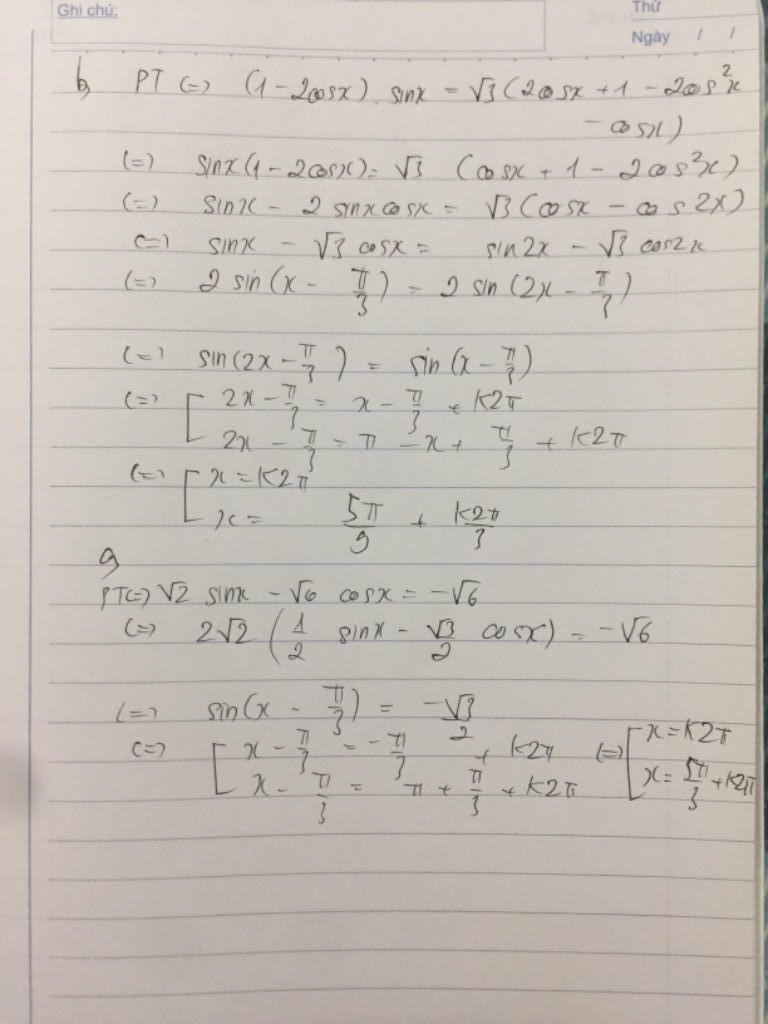 Ghi chú:
Thứ
Ngày / /
b, PT (=) (1 - 2cosx). sinx = √3 (2cosx + 1 - 2cos²x
- cosx)
(=) sinx(1 - 2cosx) = √3 (cosx + 1 - 2cos²x)
(=) sinx - 2 sinxcosx = √3 (cosx - cos2x)
(=) sinx - √3 cosx = sin2x - √3 cos2x
(=) 2 sin(x - π/3) = 2 sin(2x - π/3)
(=) sin(2x - π/3) = sin(x - π/3)
(=) [ 2x - π/3 = x - π/3 + K2π
2x - π/3 = π - x + π/3 + K2π
(=) [ x = K2π
x = 5π/9 + K2π/3
g
PT(=) √2 sinx - √6 cosx = -√6
(=) 2√2 (1/2 sinx - √3/2 cosx) = -√6
(=) sin(x - π/3) = -√3/2
(=) [ x - π/3 = -π/3 + K2π (=) [ x = K2π
x - π/3 = π + π/3 + K2π x = 5π/3 + K2π